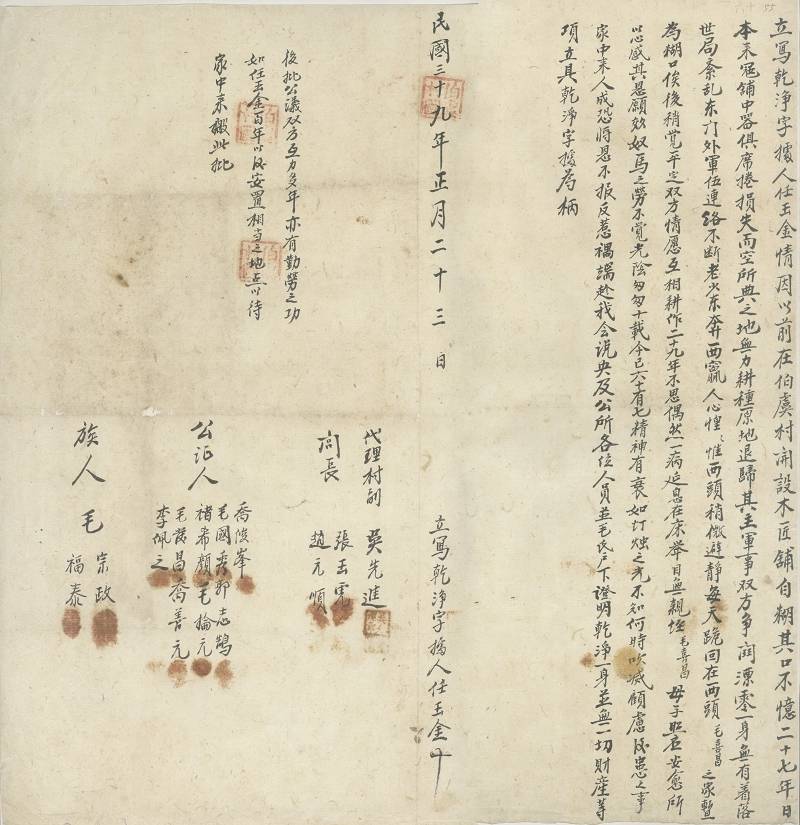 立寫乾淨字據人任玉金情因以前在伯虞村開設木匠舖自糊其口不憶二十七年日
本来寇舖中器俱席捲損失而空所典之地無力耕種原地退歸其主軍事双方爭鬪漂零一身無有着落
世局紊乱东门外軍伍連絡不断老少东奔西竄人心惶〻惟西頭稍微避靜每天跪回在西頭毛喜昌之家暫
為糊口俟後稍覚平定双方情愿互相耕作二十九年不思偶然一病延息在床举目無親姪毛喜昌母子照应安愈所
以感其恩願效奴馬之勞不覚光陰匆匆十載今已六十有七精神有衰如灯烛之光不知何時吹滅顧慮後患之事
家中来人成恐將恩不报反惹禍端赴我会说央及公所各位人員並毛氏户下證明乾淨一身並無一切財産等
項立具乾淨字據為柄
民國三十九年正月二十三日
立寫乾淨字據人任玉金十
後批公議双方互力多年亦有勤勞之功
如任玉金百年以後安置相当之地点以待
家中来搬此批
代理村副 吳先進
閭長 張玉虎
趙元順
公证人 喬俊峯
毛國秀 郭志鵠
褚希顏 毛掄元
毛發昌 喬善元
李佩之
族人 毛 宗政
福泰